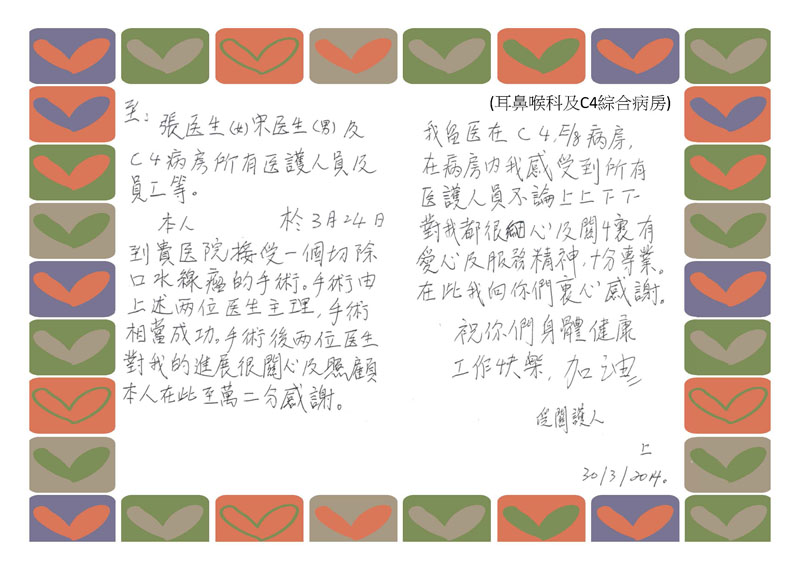 至：張医生(女)宋医生(男)及
C4病房所有医護人員及
員工等。
本人 於3月24日
到貴医院接受一個切除
口水線瘤的手術。手術由
上述两位医生主理，手術
相當成功。手術後两位医生
對我的進展很關心及照顧
本人在此至萬二分感謝。
(耳鼻喉科及C4綜合病房)
我留医在C4,E/8病房，
在病房内我感受到所有
医護人員不論上上下下
對我都很細心及關懷有
愛心及服務精神，十分專業。
在此我向你們衷心感謝。
祝你們身體健康
工作快樂，加油
護人
上
30/3/2014。